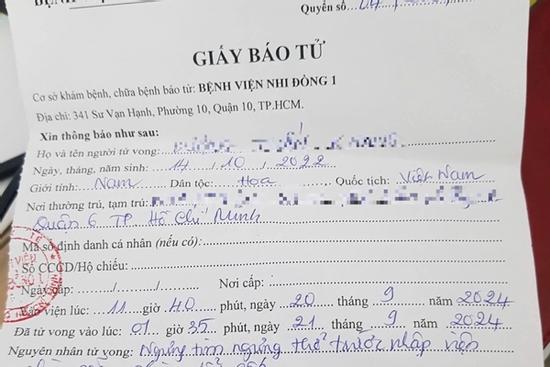 BỆNH
Quyển số: 04
GIẤY BÁO TỬ
Cơ sở khám bệnh, chữa bệnh báo tử: BỆNH VIỆN NHI ĐỒNG 1
Địa chỉ: 341 Sư Vạn Hạnh, Phường 10, Quận 10, TP.HCM.
Xin thông báo như sau:
Họ và tên người tử vong:
Ngày, tháng, năm sinh: 14 / 10 / 2022
Giới tính: Nam Dân tộc: Hoa Quốc tịch: Việt Nam
Nơi thường trú, tạm trú:
Quận 6 TP. Hồ Chí Minh
Mã số định danh cá nhân (nếu có):
Số CCCD/Hộ chiếu:
Ngày cấp: / / Nơi cấp:
viện lúc: 11 giờ 40 phút, ngày 20 tháng 9 năm 2024
Đã tử vong vào lúc: 01 giờ 35 phút, ngày 21 tháng 9 năm 2024
Nguyên nhân tử vong: Ngưng tim ngưng thở trước nhập viện